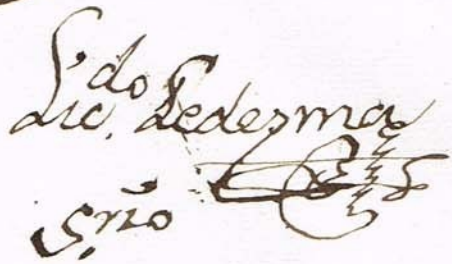 Lic.do Ledezma
Srio